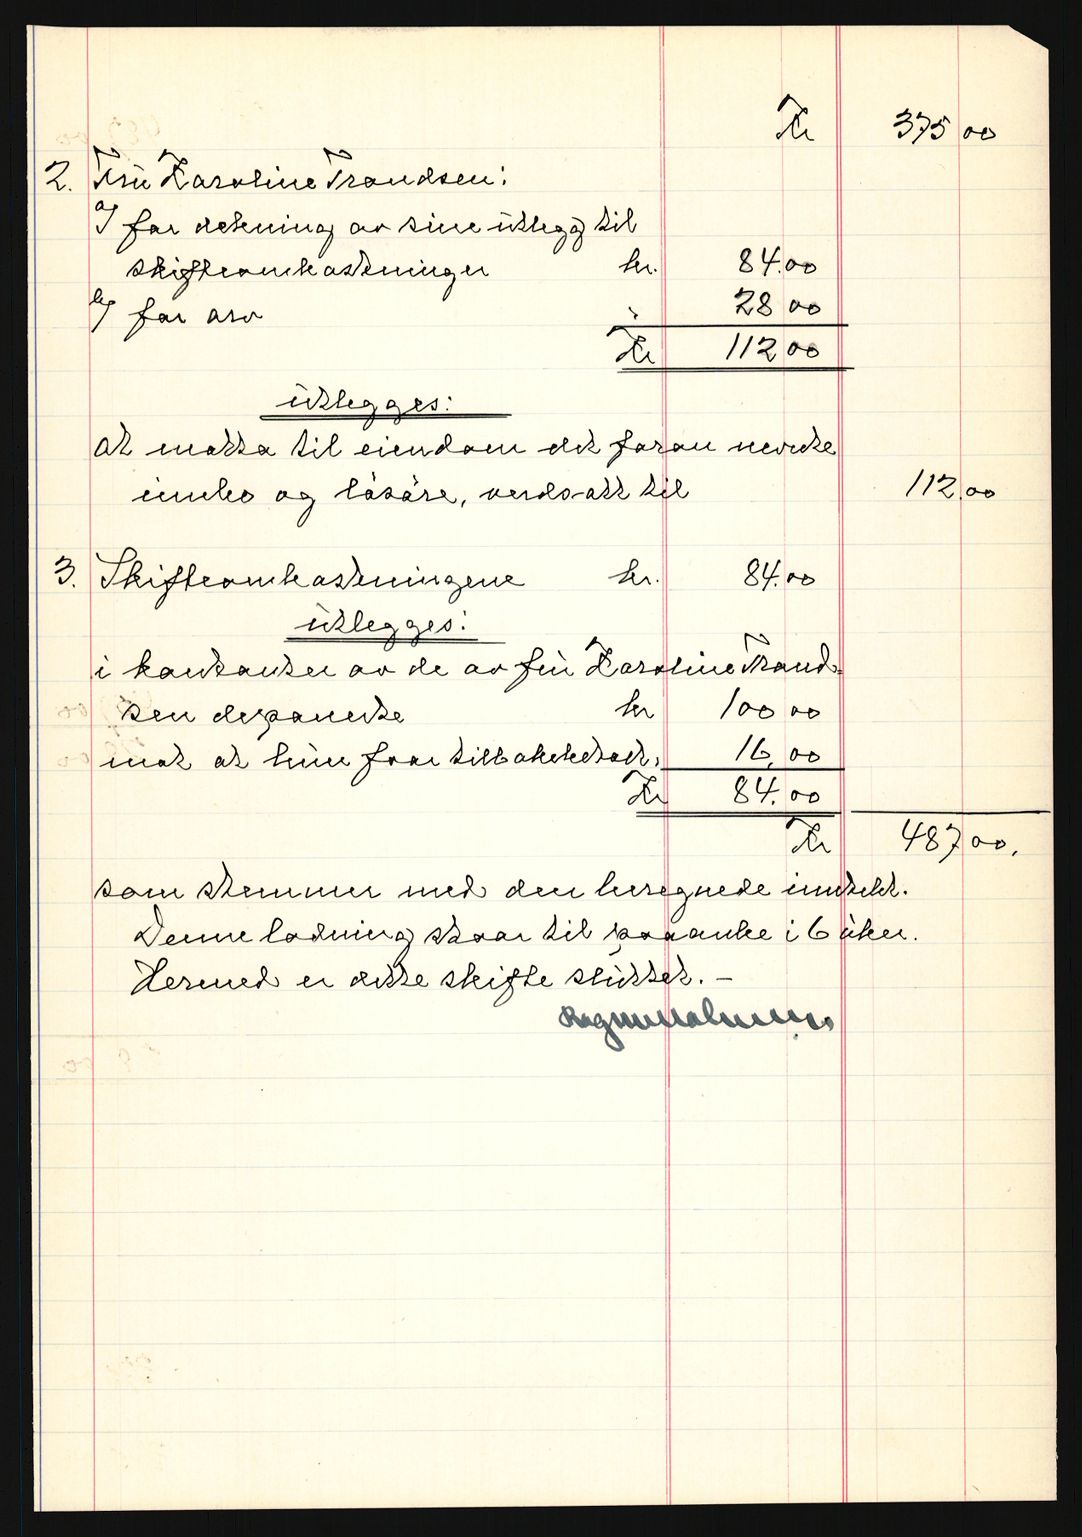 Kr 375 00
2. Frù Karoline Trondsen:
a/ for dekning av sine ùtlegg til
skifteomkostninger kr. 84.00
b/ for arv " 28 00
Kr 112 00
ùtlegges:
at motta til eiendom det foran nevnte
innbo og løsøre, verdsatt til 112.00
3. Skifteomkostningene kr. 84.00
ùtlegges:
i kontanter av de av frù Karoline Trond-
sen deponerte kr 100 00
mot at hùn faar tilbakebetalt, 16,00
Kr 84.00
Kr 487 00.
som stemmer med den beregnede inntekt.
Denne lodning staar til paaanke i 6 ùker.
Hermed er dette skifte slùttet. –